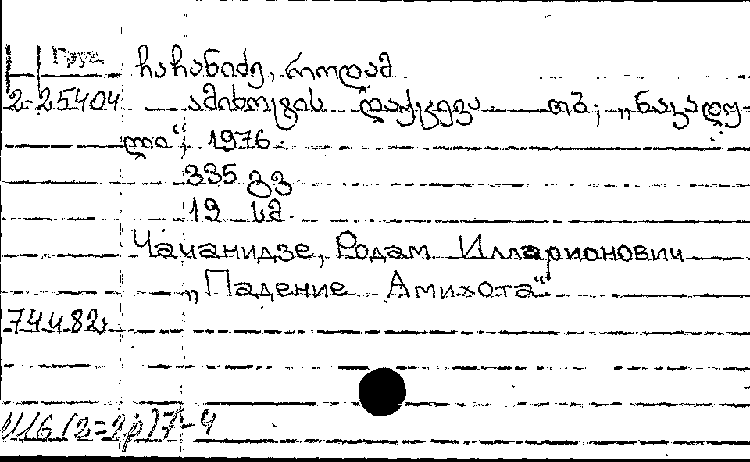 Груз
ჩაჩანიძე, როდამ
2-25404 ამიხოტის დაქცევა თბ, „ნაკადუ-
ლი“, 1976
335 გვ
19 სმ
Чачанидзе, Родам Илларионович
„Падение Амихота“
74 и 82
И16(2=Гр)7-4